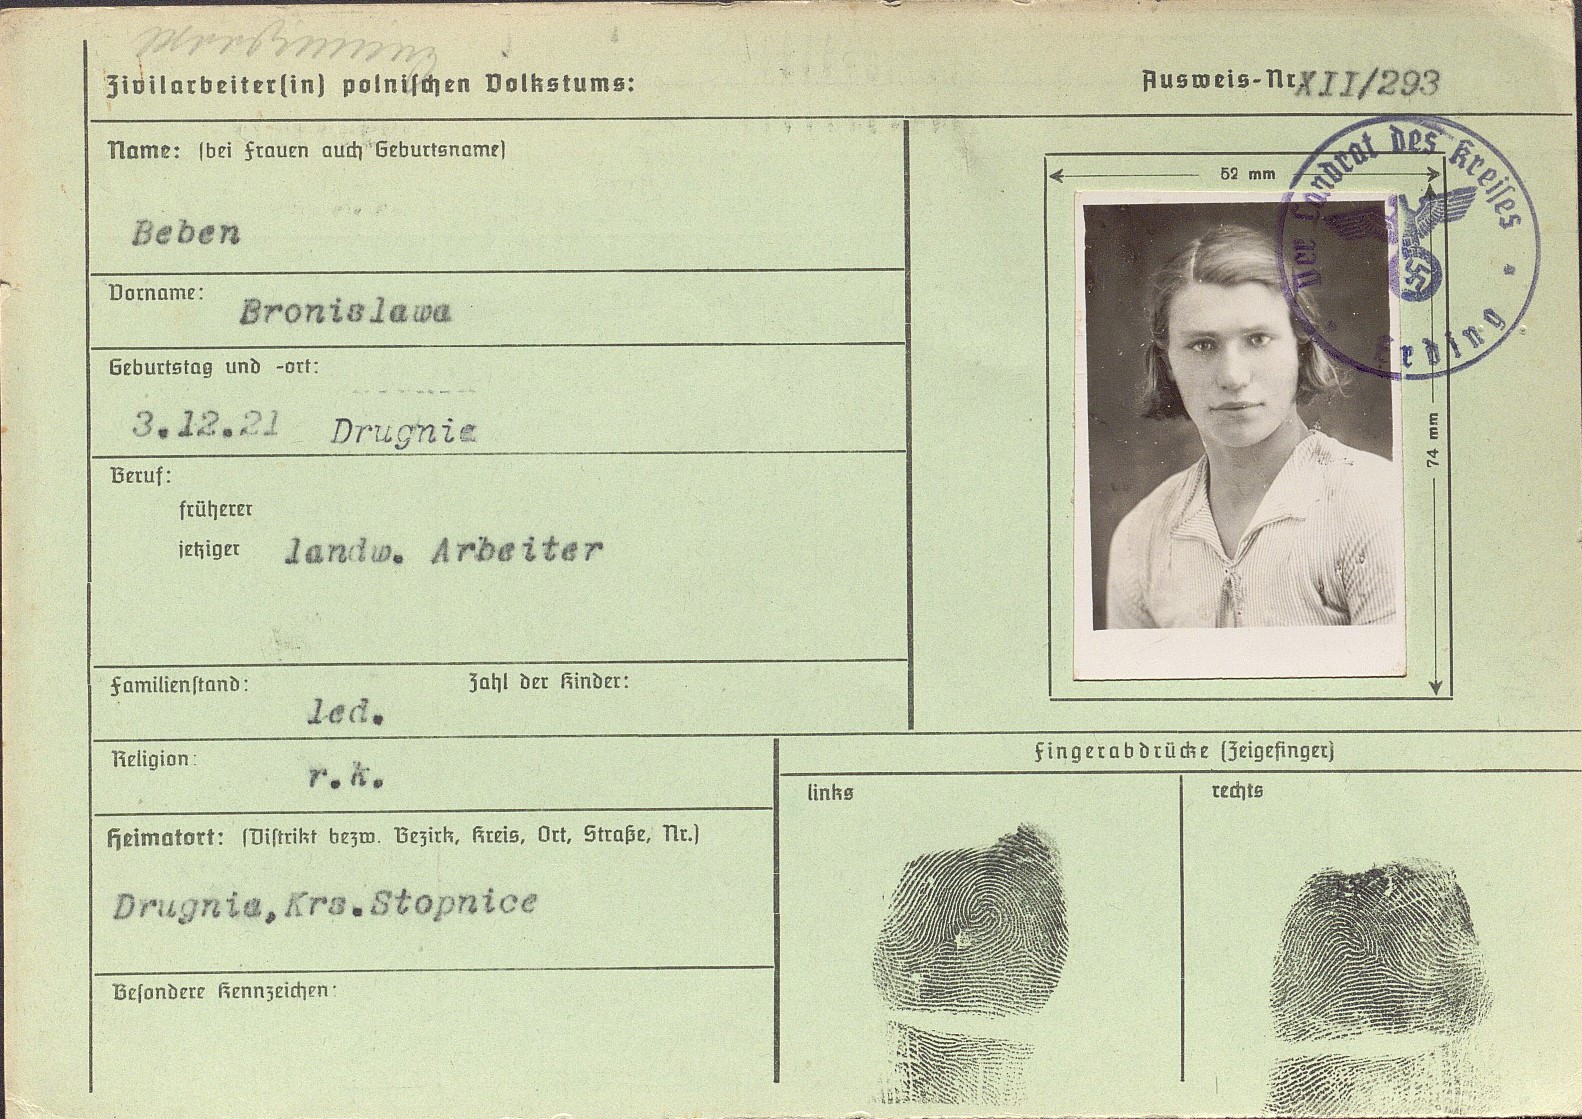 Zivilarbeiter(in) polnischen Volkstums:
Ausweis-Nr. XII/293
Name: (bei Frauen auch Geburtsname)
Beben
Vorname: Bronislawa
Geburtstag und -ort:
3.12.21 Drugnia
Beruf:
früherer
jetziger landw. Arbeiter
Familienstand: Zahl der Kinder:
led.
Religion:
r.k.
Heimatort: (Distrikt bezw. Bezirk, Kreis, Ort, Straße, Nr.)
Drugnia,Krs.Stopnice
Besondere Kennzeichen:
52 mm
74 mm
Der Landrat des Kreises
Erding
Fingerabdrücke (Zeigefinger)
links
rechts